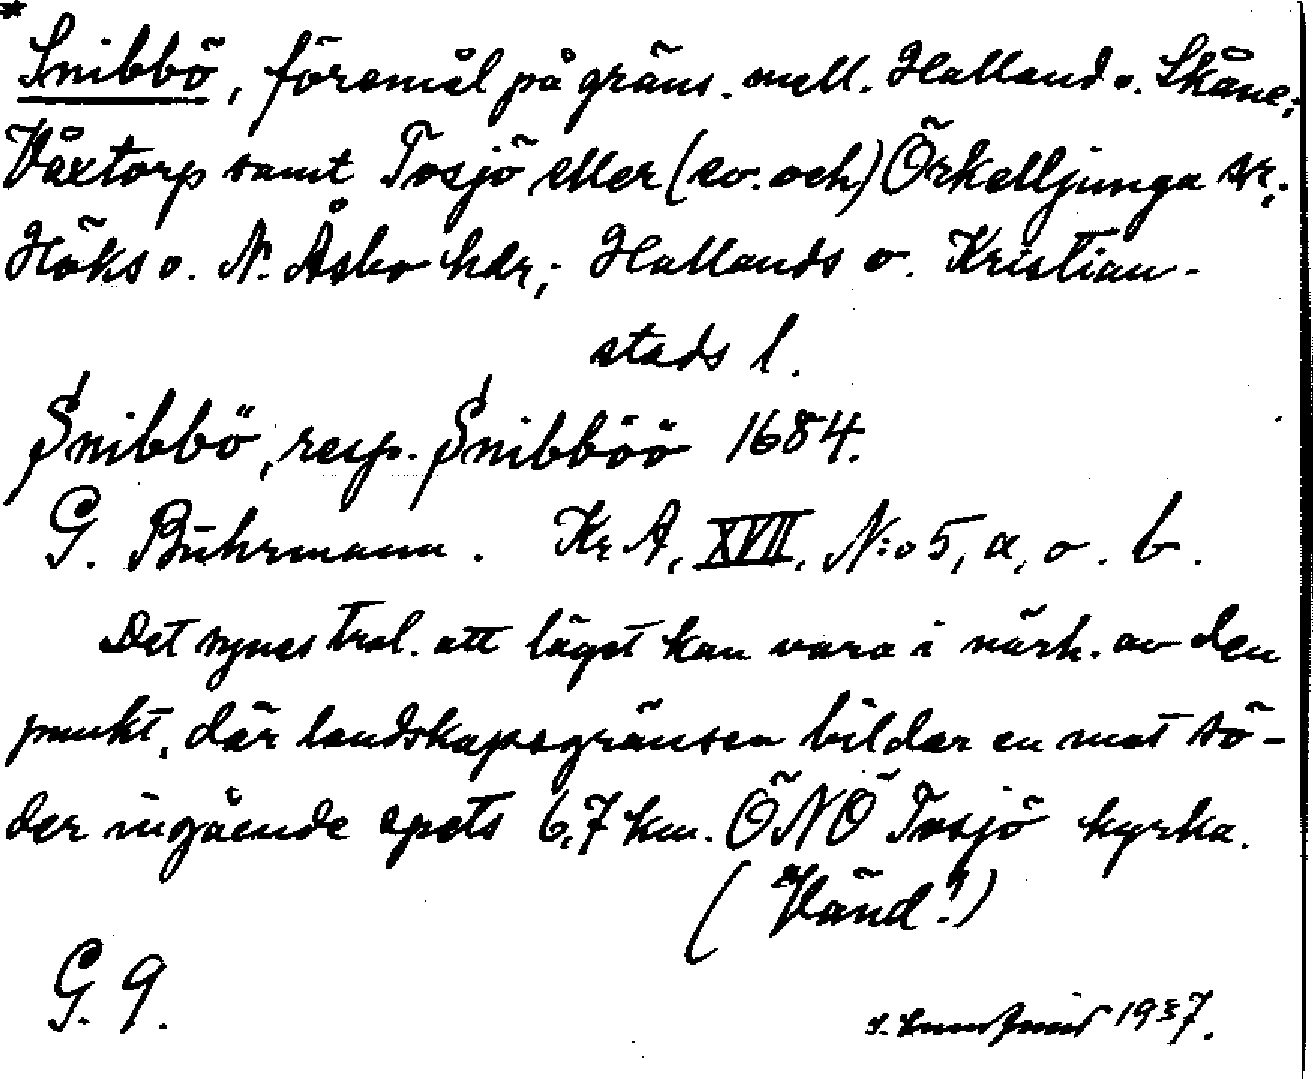 * Snibbö, föremål på gräns. mell. Halland o. Skåne;
Våxtorp samt Tosjö eller (ev. och) Örkelljunga snr;
Höks o. N. Åsbo hdr; Hallands o. Kristian-
stads l.
Snibbö, resp. Snibböö 1684.
G. Buhrmann. Kr A, XVII, N:o 5, a, o. b.
Det synes trol. att läget kan vara i närh. av den
punkt, där landskapsgränsen bildar en mot sö-
der ingående spets 6,7 km. ÖNÖ Tosjö kyrka.
(Vänd!)
G. 9.
1937.